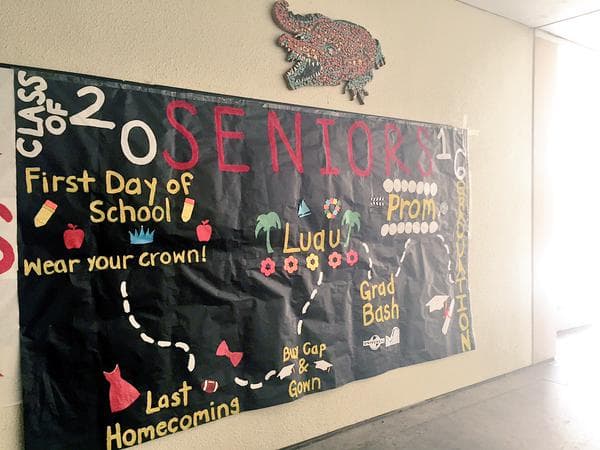 CLASS
OF
20 SENIORS 16
First Day of
School
Wear your crown!
Last
Homecoming
Buy Cap
&
Gown
Luau
Grad
Bash
Prom
GRADUATION